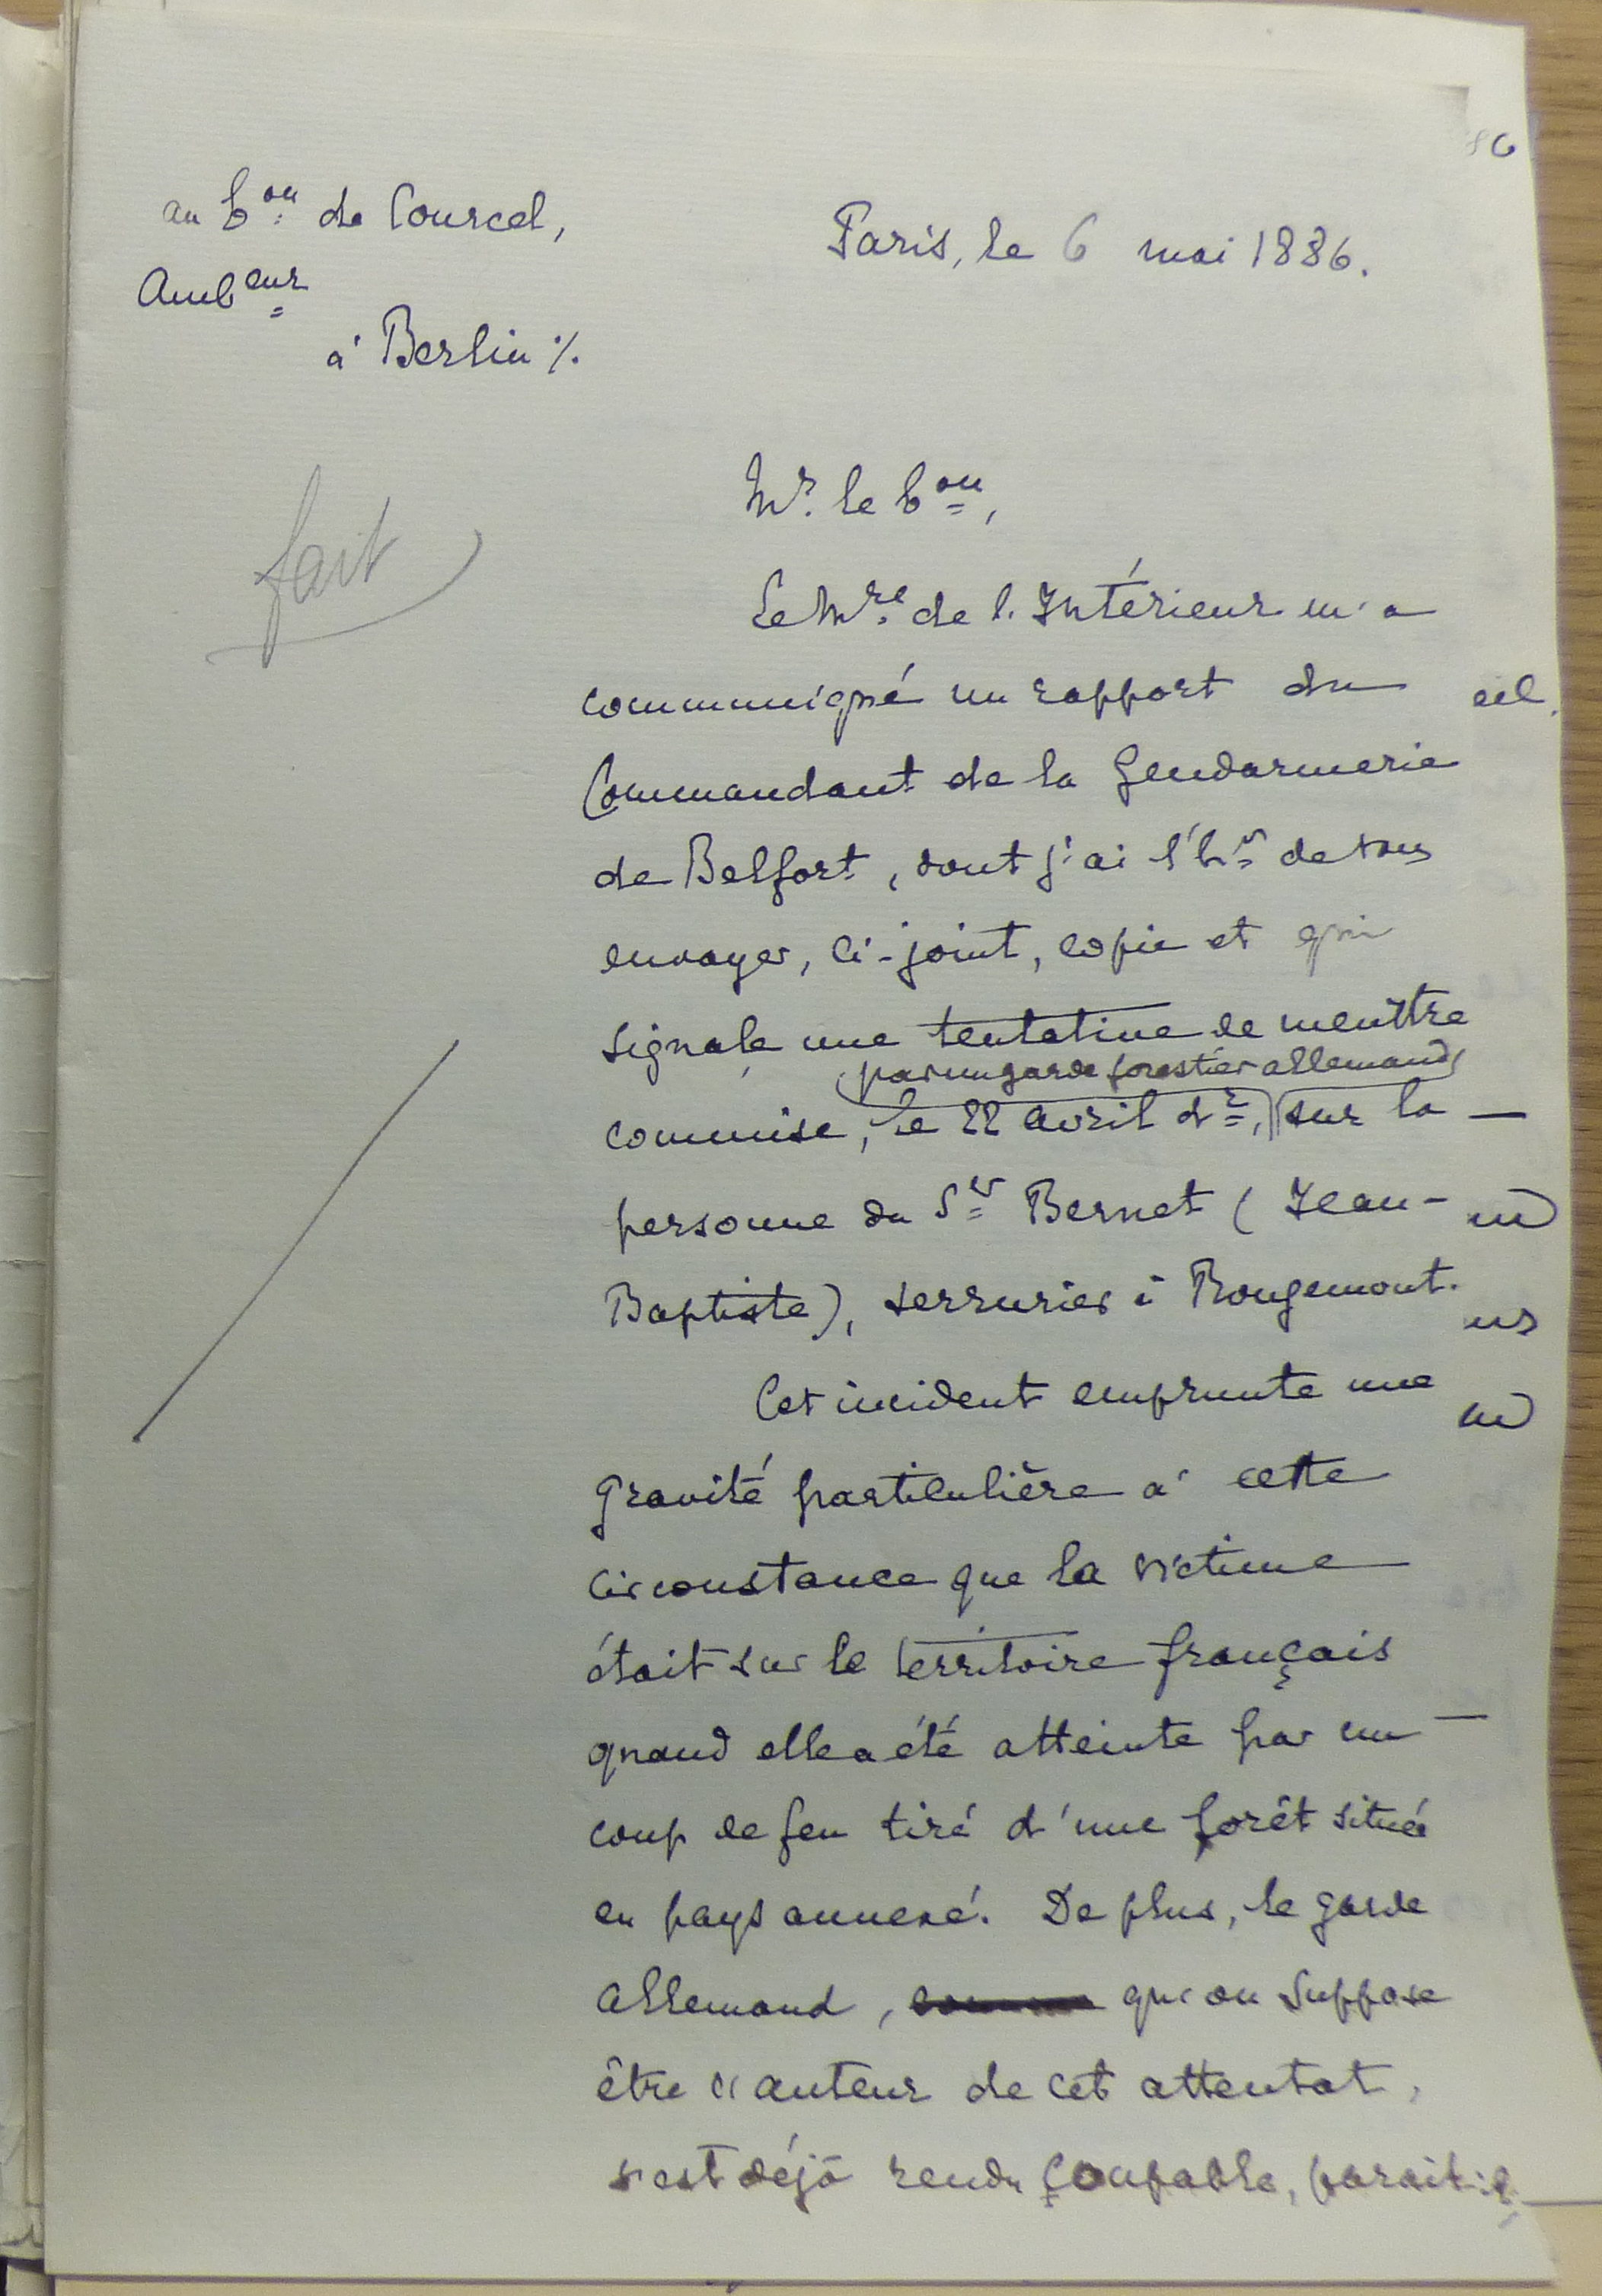 86
au Bon de Courcel,
Ambeur
à Berlin ./.
Paris, le 6 mai 1886.
fait
Mr. le Bon,
Le Mre de l'Intérieur m'a
communiqué un rapport du
Commandant de la Gendarmerie
de Belfort, dont j'ai l'hr de vous
envoyer, ci-joint, copie et qui
signale une tentative de meurtre
par un garde forestier allemand,
commise, le 22 avril dr, sur la
personne du Sr Bernet (Jean-
Baptiste), serrurier à Rougemont.
Cet incident emprunte une
gravité particulière à cette
circonstance que la victime
était sur le territoire français
quand elle a été atteinte par un
coup de feu tiré d'une forêt située
en pays annexé. De plus, le garde
allemand, qu'on suppose
être l'auteur de cet attentat,
s'est déjà rendu coupable, paraît-il